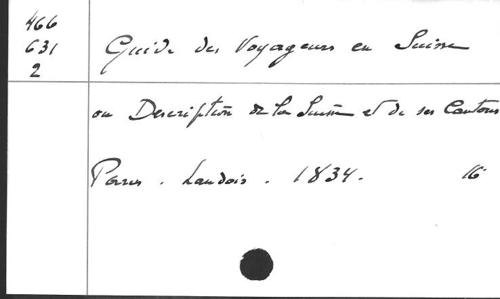 466
631
2
Guide des Voyageurs en Suisse
ou Description de la Suisse et de ses Cantons
Paris. Landois. 1834. 16